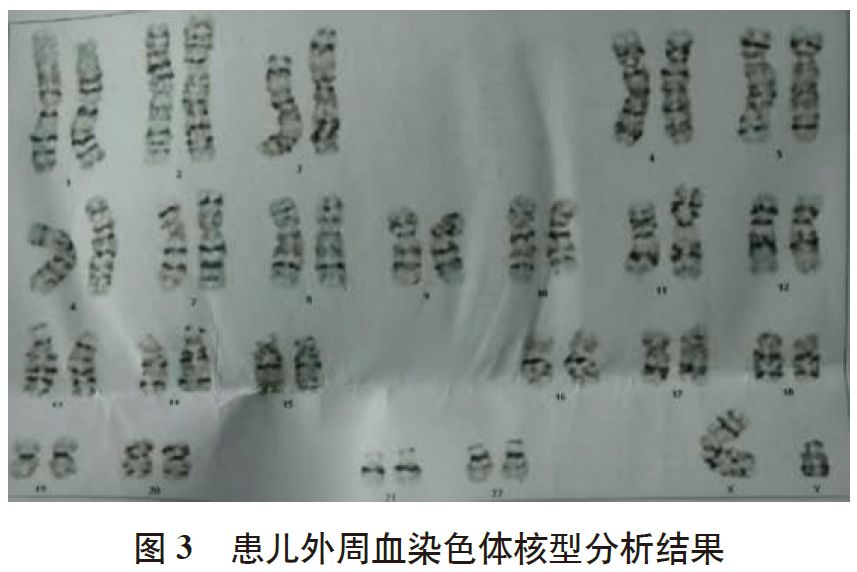 1 2 3 4 5
6 7 8 9 10 11 12
13 14 15 16 17 18
19 20 21 22 X Y
图 3 患儿外周血染色体核型分析结果